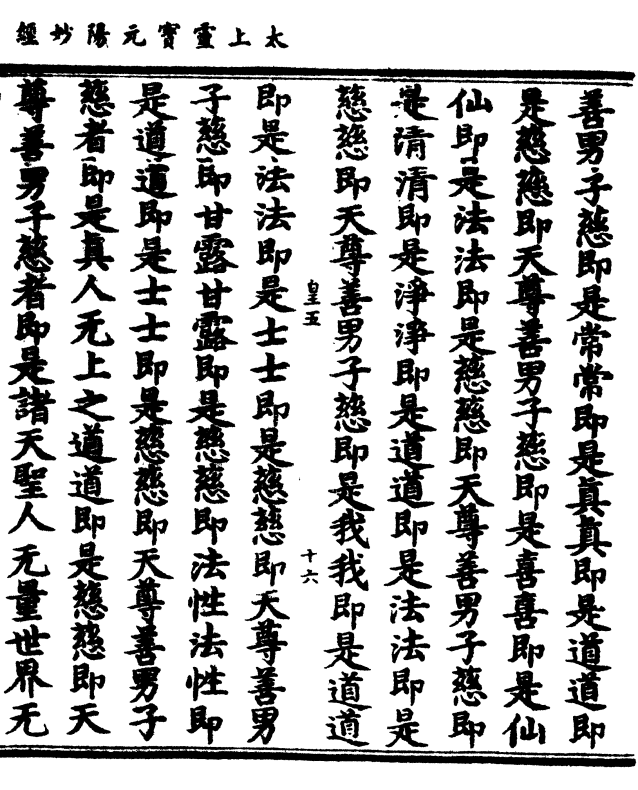 太上靈寶元陽妙經
善男子慈即是常常即是真真即是道道即
是慈慈即天尊善男子慈即是喜喜即是仙
仙即是法法即是慈慈即天尊善男子慈即
是清清即是淨淨即是道道即是法法即是
慈慈即天尊善男子慈即是我我即是道道
皇五
十六
即是法法即是士士即是慈慈即天尊善男
子慈即甘露甘露即是慈慈即法性法性即
是道道即是士士即是慈慈即天尊善男子
慈者即是真人无上之道道即是慈慈即天
尊善男子慈者即是諸天聖人无量世界无